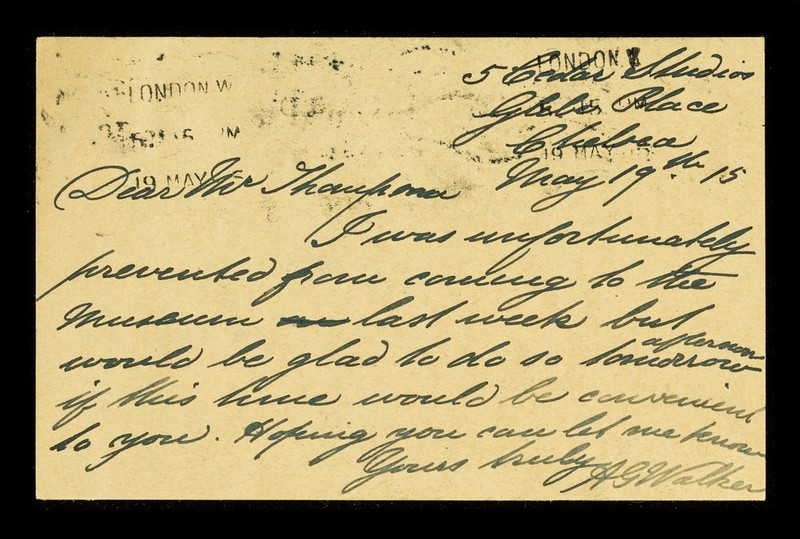 LONDON.W
5.15 PM
19 MAY 15
LONDON.W
5.15 PM
19 MAY 15
5 Cedar Studios
Glebe Place
Chelsea
May 19th 15
Dear Mr Thompson
I was unfortunately
prevented from coming to the
Museum last week but
would be glad to do so tomorrow afternoon
if this time would be convenient
to you. Hoping you can let me know
Yours truly A G Walker